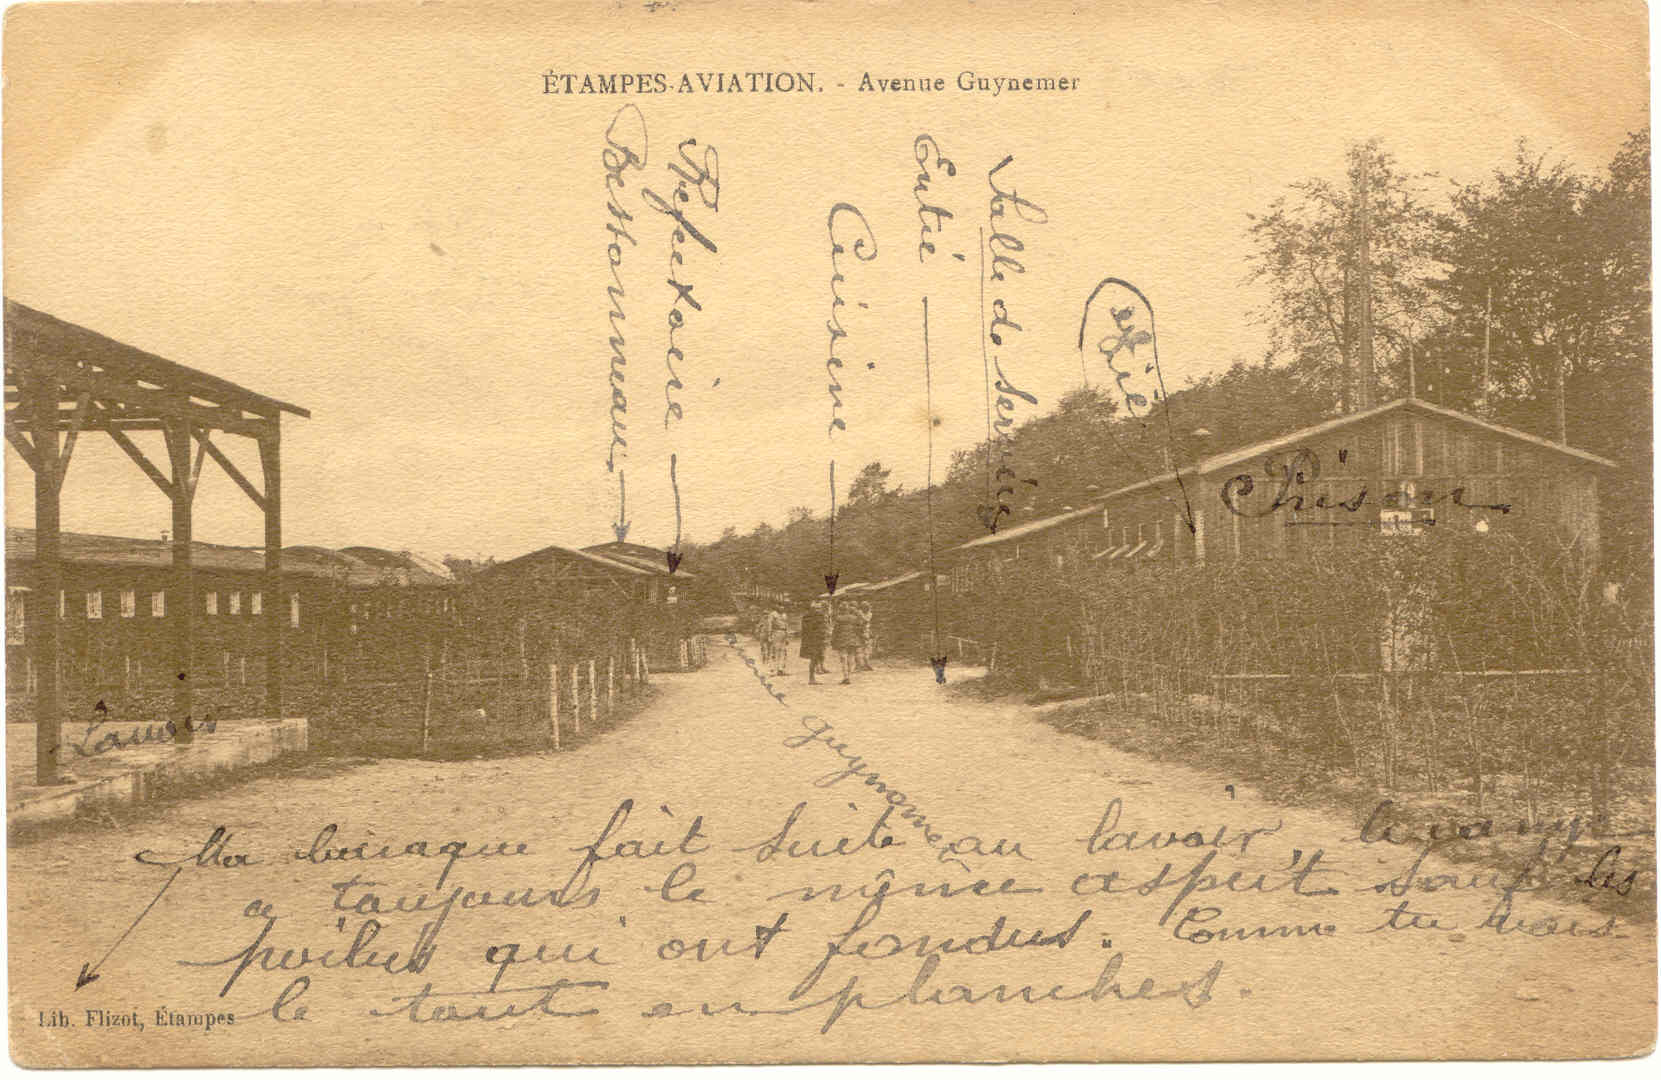 ÉTAMPES-AVIATION. - Avenue Guynemer
Bessonneau
Refectoire
Cuisine
Entrée
Salle de Service
Prison
Lavoir
avenue guynemer
Ma baraque fait suite au lavoir, le camp
a toujours le même aspect sauf les
poilus qui ont fondus. Comme tu vois
le tout en planches.
Lib. Flizot, Étampes